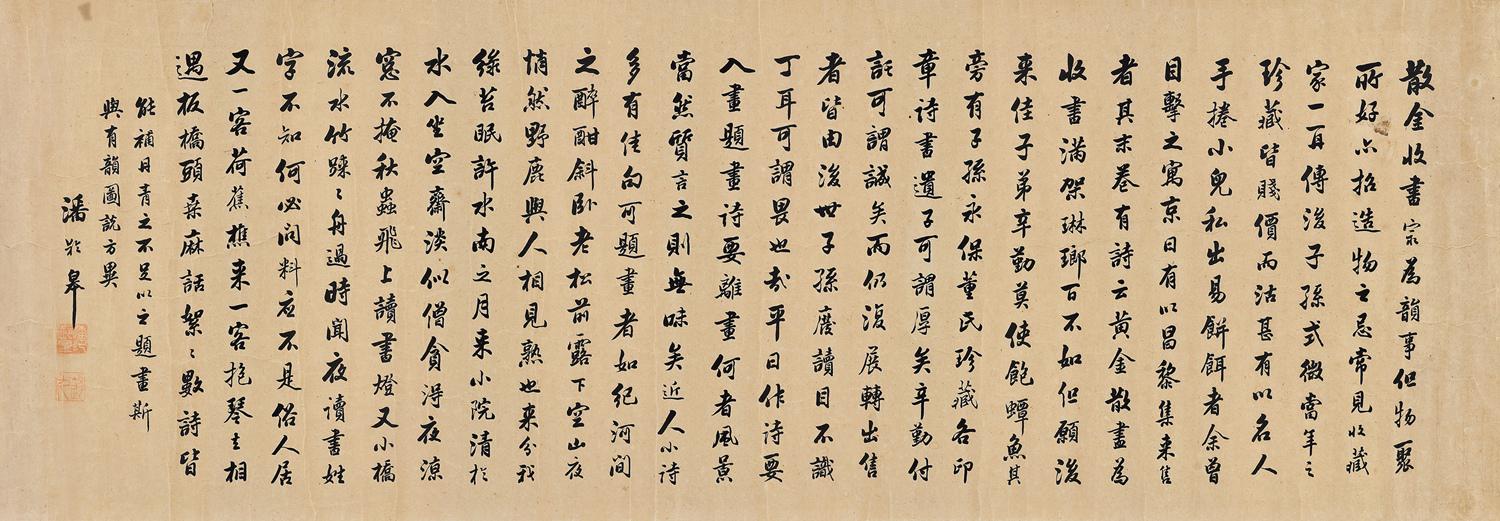 散金收書宗為韻事但物聚
所好亦招造物之忌常見收藏
家一再傳後子孫式微當年之
珍藏皆賤價而沽甚有以名人
手捲小兒私出易餅餌者余曾
目擊之寓京日有以昌黎集来售
者其末卷有詩云黃金散盡為
收書滿架琳瑯百不如但願後
来佳子弟辛勤莫使飽蟫魚其
旁有子孫永保董氏珍藏各印
章詩書遺子可謂厚矣辛勤付
託可謂誠矣而仍復展轉出售
者皆由後世子孫廢讀目不識
丁耳可謂畏也哉平日作詩要
入畫題畫詩要離畫何者風景
當然質言之則無味矣近人小詩
多有佳句可題畫者如紀河間
之醉酣斜卧老松前露下空山夜
悄然野鹿與人相見熟也来分我
綠苔眠許水南之月来小院清於
水人坐空齋淡似僧貪得夜涼
窓不掩秋蟲飛上讀書燈又小橋
流水竹踈々舟過時聞夜讀書姓
字不知何必問料應不是俗人居
又一客荷蕉樵来一客抱琴去相
遇板橋頭桑麻話絮々數詩皆
能補丹青之不足以之題畫斯
與有韻圖說方異
潘齡皋